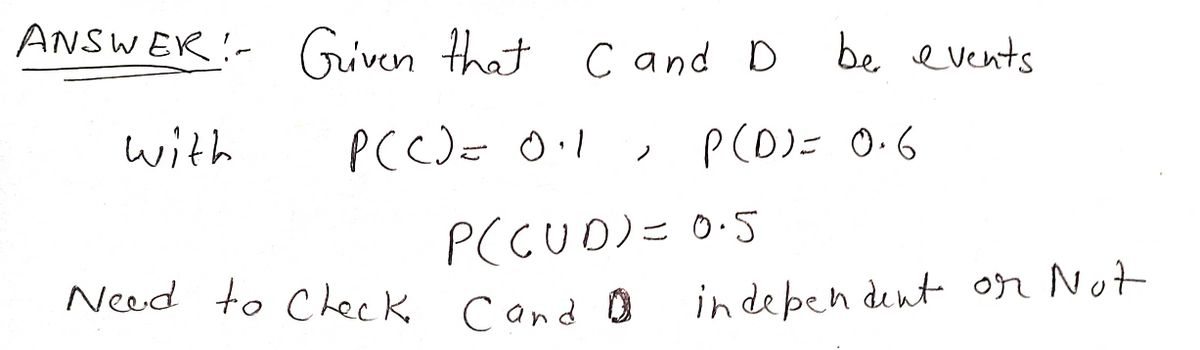 ANSWER:- Given that C and D be events
with P(C)= 0.1 , P(D)= 0.6
P(CUD)= 0.5
Need to Check C and D independent or Not